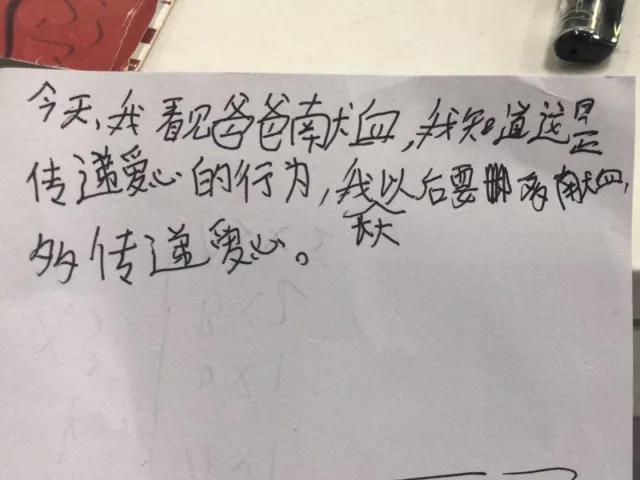 今天,我看见爸爸献血,我知道这是
传递爱心的行为,我长大以后要多献血,
多传递爱心。